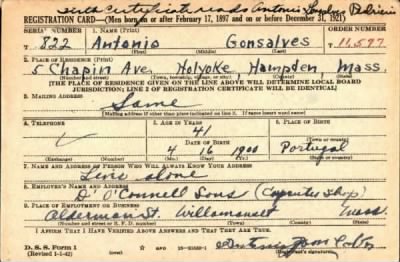 birth certificate reads Antonio
REGISTRATION CARD—(Men born on or after February 17, 1897 and on or before December 31, 1921)
SERIAL NUMBER 1. NAME (Print) ORDER NUMBER
T 822 Antonio Gonsalves T 11,597
2. PLACE OF RESIDENCE (Print)
5 Chapin Ave, Holyoke Hampden Mass
(Number and street) (Town, township, village, or city) (County) (State)
[THE PLACE OF RESIDENCE GIVEN ON THE LINE ABOVE WILL DETERMINE LOCAL BOARD
JURISDICTION; LINE 2 OF REGISTRATION CERTIFICATE WILL BE IDENTICAL]
3. MAILING ADDRESS
Same
[Mailing address if other than place indicated on line 2. If same insert word same]
4. TELEPHONE 5. AGE IN YEARS 6. PLACE OF BIRTH
41
DATE OF BIRTH Portugal
4 16 1900
(Exchange) (Number) (Mo.) (Day) (Yr.) (State or country)
7. NAME AND ADDRESS OF PERSON WHO WILL ALWAYS KNOW YOUR ADDRESS
Live alone
8. EMPLOYER'S NAME AND ADDRESS
D' O'Connell Sons (Carpenter Shop)
9. PLACE OF EMPLOYMENT OR BUSINESS
Alderman St. Willamansett Mass.
(Number and street or R. F. D. number) (Town) (County) (State)
I AFFIRM THAT I HAVE VERIFIED ABOVE ANSWERS AND THAT THEY ARE TRUE.
D. S. S. Form 1
(Revised 1-1-42) GPO